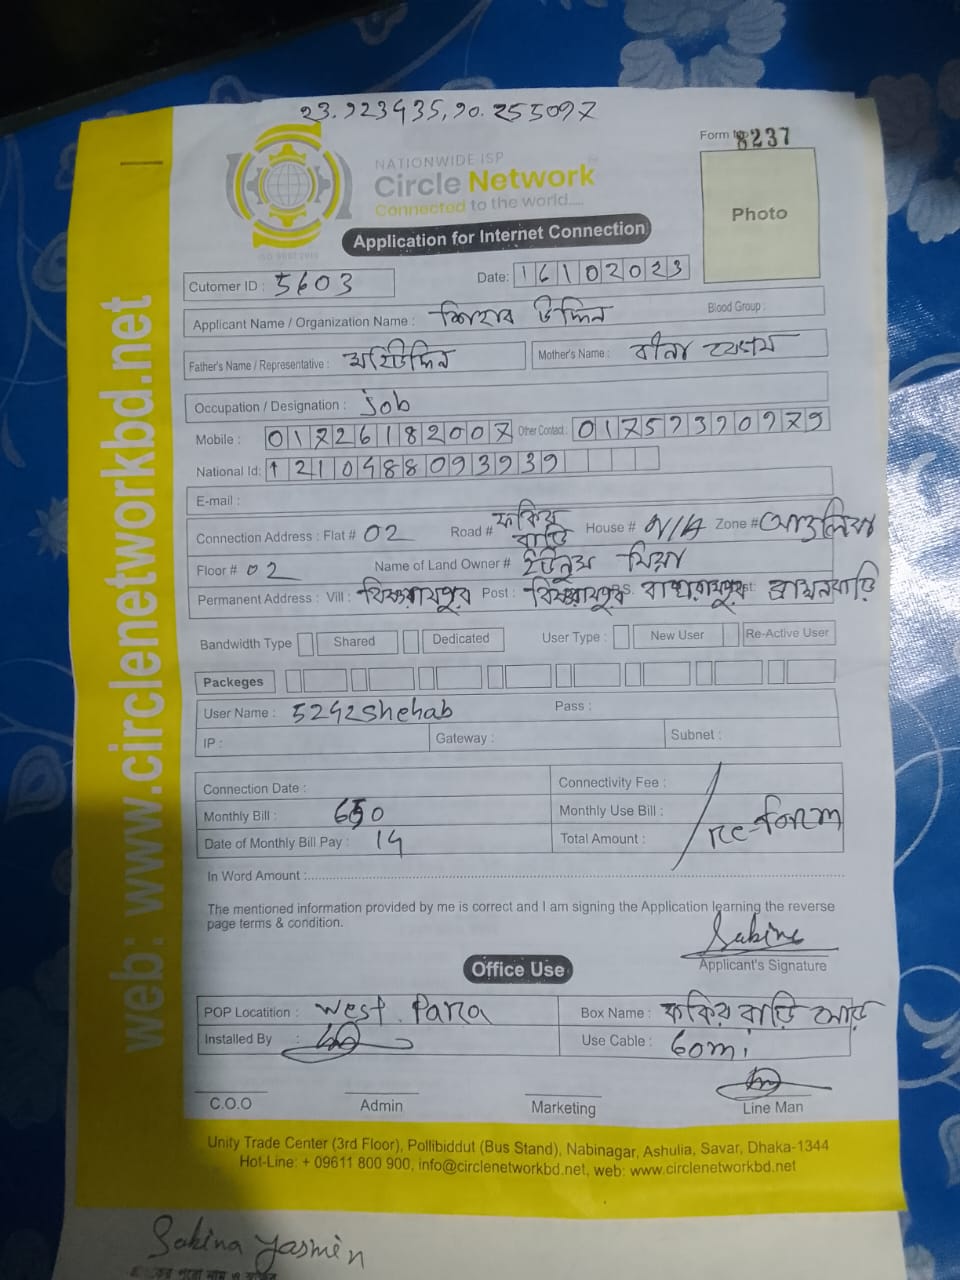 23.923435,90.255097
Form No 8237
NATIONWIDE ISP
Circle Network
Connected to the world.....
ISO 9001:2015
Photo
Application for Internet Connection
Cutomer ID : 5603
Date: 16102023
Applicant Name / Organization Name : শিহাব উদ্দিন Blood Group :
Father's Name / Representative : মহিউদ্দিন Mother's Name : বীনা বেগম
Occupation / Designation : job
Mobile : 01726182007 Other Contact : 01759390979
National Id: 1210488093939
E-mail :
Connection Address : Flat # 02 Road # ফকির বাড়ি House # N/A Zone # আশুলিয়া
Floor # 02 Name of Land Owner # ইউনুস মিয়া
Permanent Address : Vill : বিষ্ণুরামপুর Post : বিষ্ণুরামপুর
Bandwidth Type Shared Dedicated User Type : New User Re-Active User
Packeges
User Name : 5292shehab Pass :
IP : Gateway : Subnet :
Connection Date : Connectivity Fee :
Monthly Bill : 650 Monthly Use Bill :
Date of Monthly Bill Pay : 14 Total Amount : re-form
In Word Amount :
The mentioned information provided by me is correct and I am signing the Application learning the reverse
page terms & condition.
Sakina
Applicant's Signature
Office Use
POP Locatition : West Para Box Name : ফকির বাড়ি
Installed By : Use Cable : 60m
C.O.O Admin Marketing Line Man
Unity Trade Center (3rd Floor), Pollibiddut (Bus Stand), Nabinagar, Ashulia, Savar, Dhaka-1344
Hot-Line: + 09611 800 900, info@circlenetworkbd.net, web: www.circlenetworkbd.net
web: www.circlenetworkbd.net
Sakina Yasmin